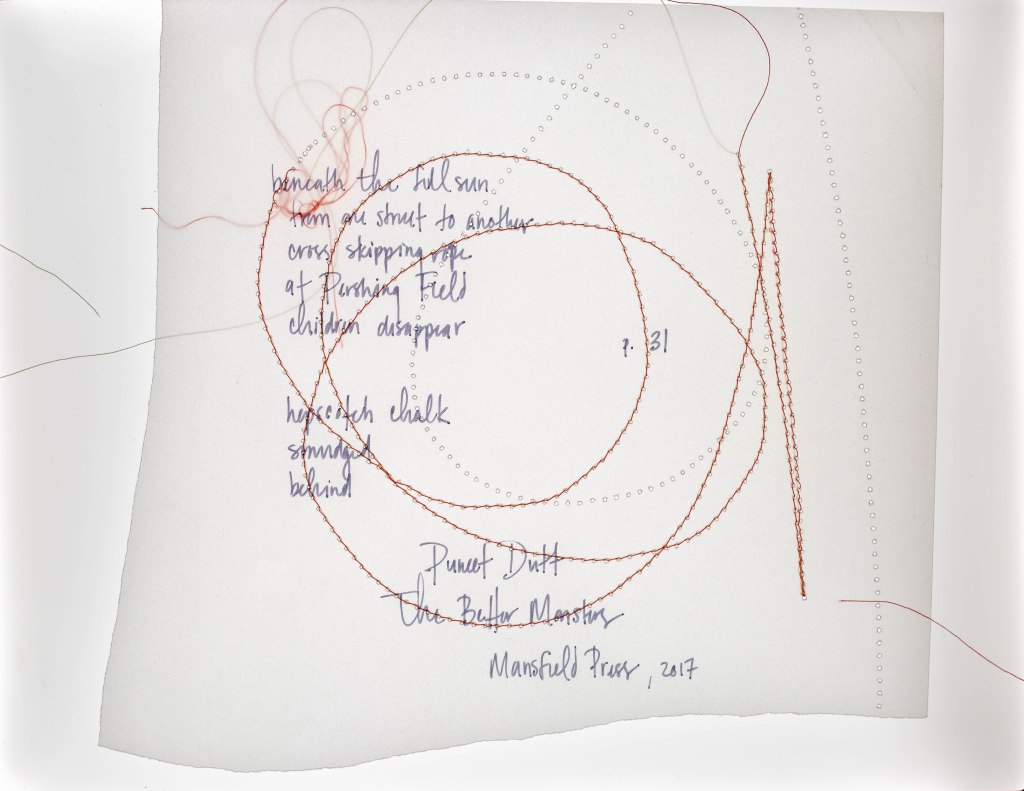 beneath the full sun
from one street to another
cross skipping rope
at Pershing Field
children disappear
p. 31
hopscotch chalk
smudged
behind
Puneet Dutt
The Better Monsters
Mansfield Press, 2017